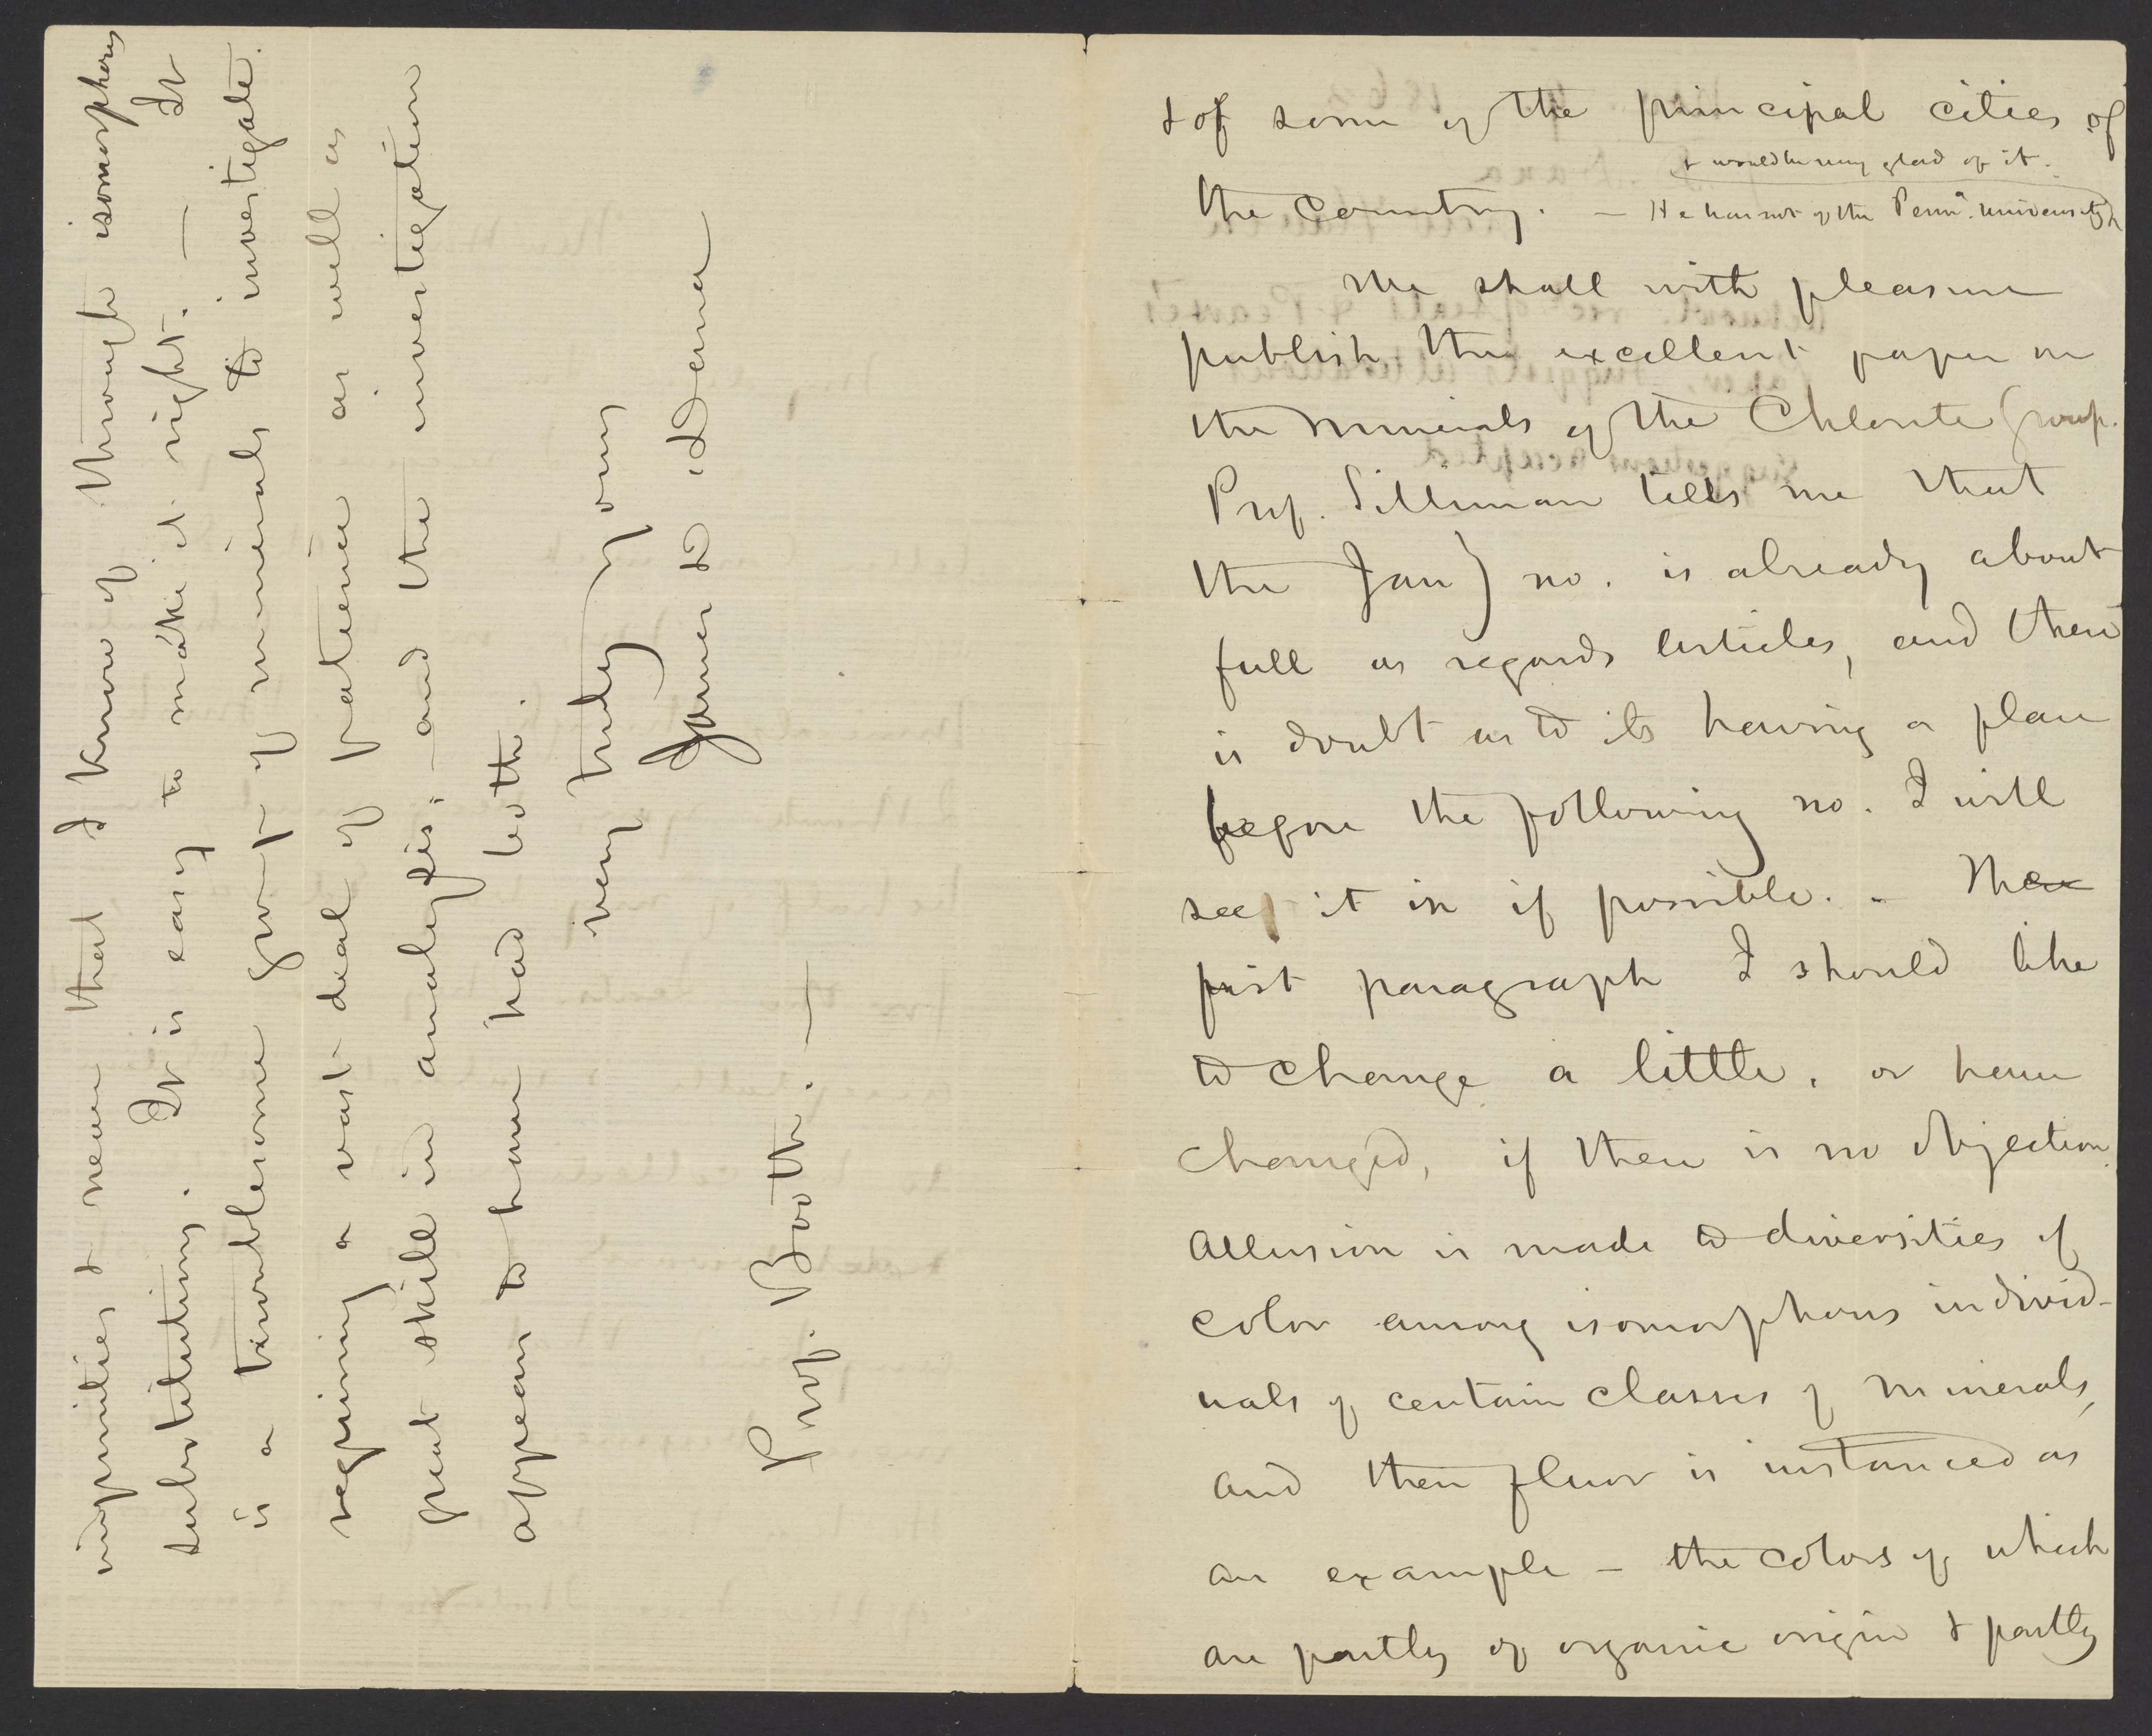 & of some of the principal cities of
& would be very glad of it.
the country. — He has not of the Penn.ª University &
We shall with pleasure
publish the excellent paper on
the Minerals of the Chlorite Group.
Prof. Silliman tells me that
the Jan) no. is already about
full as regards articles, and there
is doubt as to its having a place
before the following no. I will
see it in if possible. - The
first paragraph I should like
to change a little, or have
changed, if there is no objection.
Allusion is made to diversities of
color among isomorphous individ-
uals of certain classes of minerals,
and then fluor is instanced as
an example – the colors of which
are partly of organic origin & partly
impurities & never that I know of through isomorphous
substitutions. It is easy to make it right. — It
is a troublesome group of minerals to investigate.
requiring a vast deal of patience as well as
great skill in analysis; – and the investigation
appears to have had both.
very truly yours
James D Dana
Prof. Booth. —